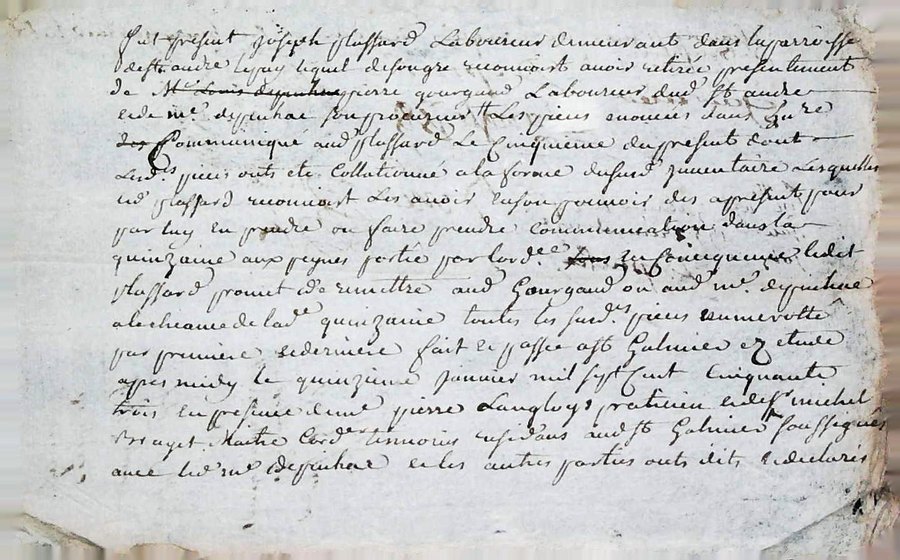 fut présent joseph plassard Laboureur demeurant dans la parroisse
de st andre lepuy lequel de son gre reconnoist avoir retirée présentement
de Mr Louis depinhac pierre gourgaud Laboureur dud. st andre
et de me. depinhac son procureur Les pieces enoncées dans
des Communiqué aud. plassard Le Cinquieme du present dont
Lesd.s pieces onts ete Collationné a la forme dususd. jnventaire Lesquelles
led. plassard reconnoist Les avoir en son pouvoir des apresent pour
par luy en prendre ou faire prendre communication dans la
quinzaine aux peynes portée par lord.ce en Consequence ledit
plassard promet de remettre aud. Gourgaud ou aud. me. depinhac
a lecheance de lad.e quinzaine toutes les susd.es pieces
par premiere et derniere fait et passée a st Galmier ez etude
apres midy le quinzieme Janvier mil sept Cent Cinquante
trois en presence de me pierre Langloys praticien et de sr michel
Maitre Cord.er tesmoins residans aud. st Galmier soussignés
avec led. me. depinhac et les autres parties onts dits et declarés